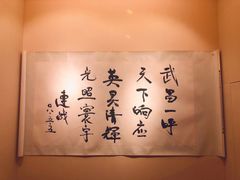 武昌一呼
天下响应
英灵清辉
光照寰宇
连战